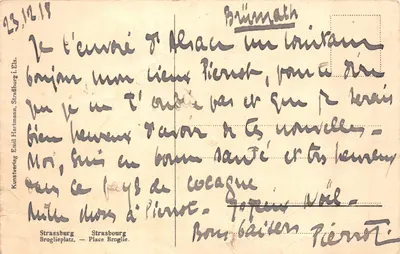 23.12.18
Brümath
Je t'envoie d'Alsace un lointain
bonjour, mon vieux Pierrot, pour te dire
que je ne t'oublie pas et que je serais
bien heureux d'avoir de tes nouvelles -
Moi, suis en bonne santé et très heureux
dans ce pays de cocagne
Mille choses à Pierrot. Joyeux Noël -
Bons baisers Pierrot.
Kunstverlag Emil Hartmann, Straßburg i. Els.
Strassburg Strasbourg
Broglieplatz. — Place Broglie.